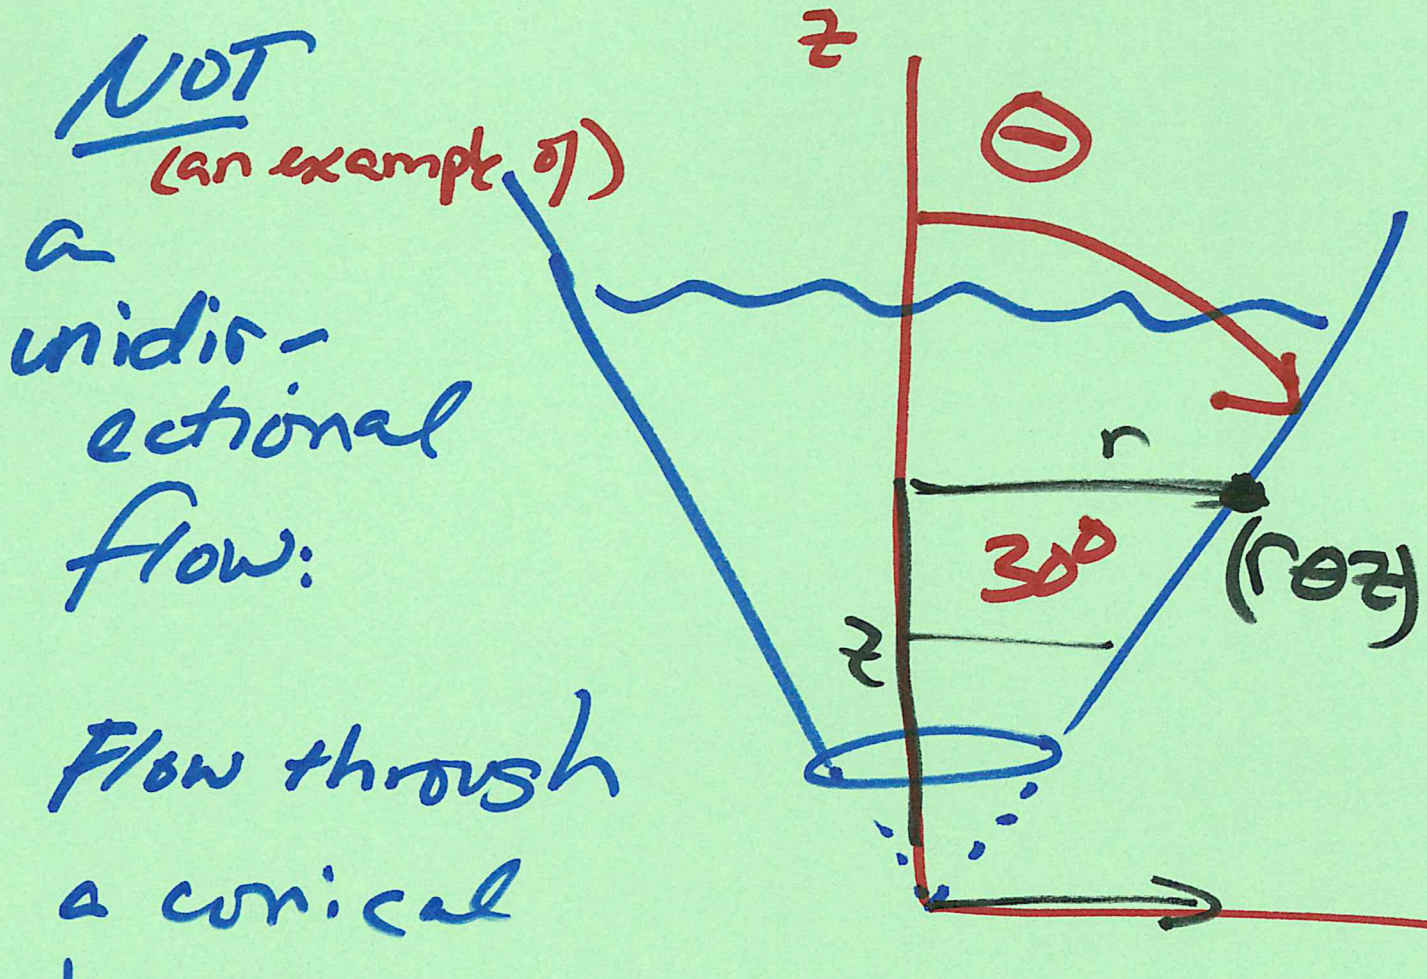 NOT
(an example of)
a
unidir-
ectional
flow:
Flow through
a conical
z
Θ
r
30°
(rθz)
z